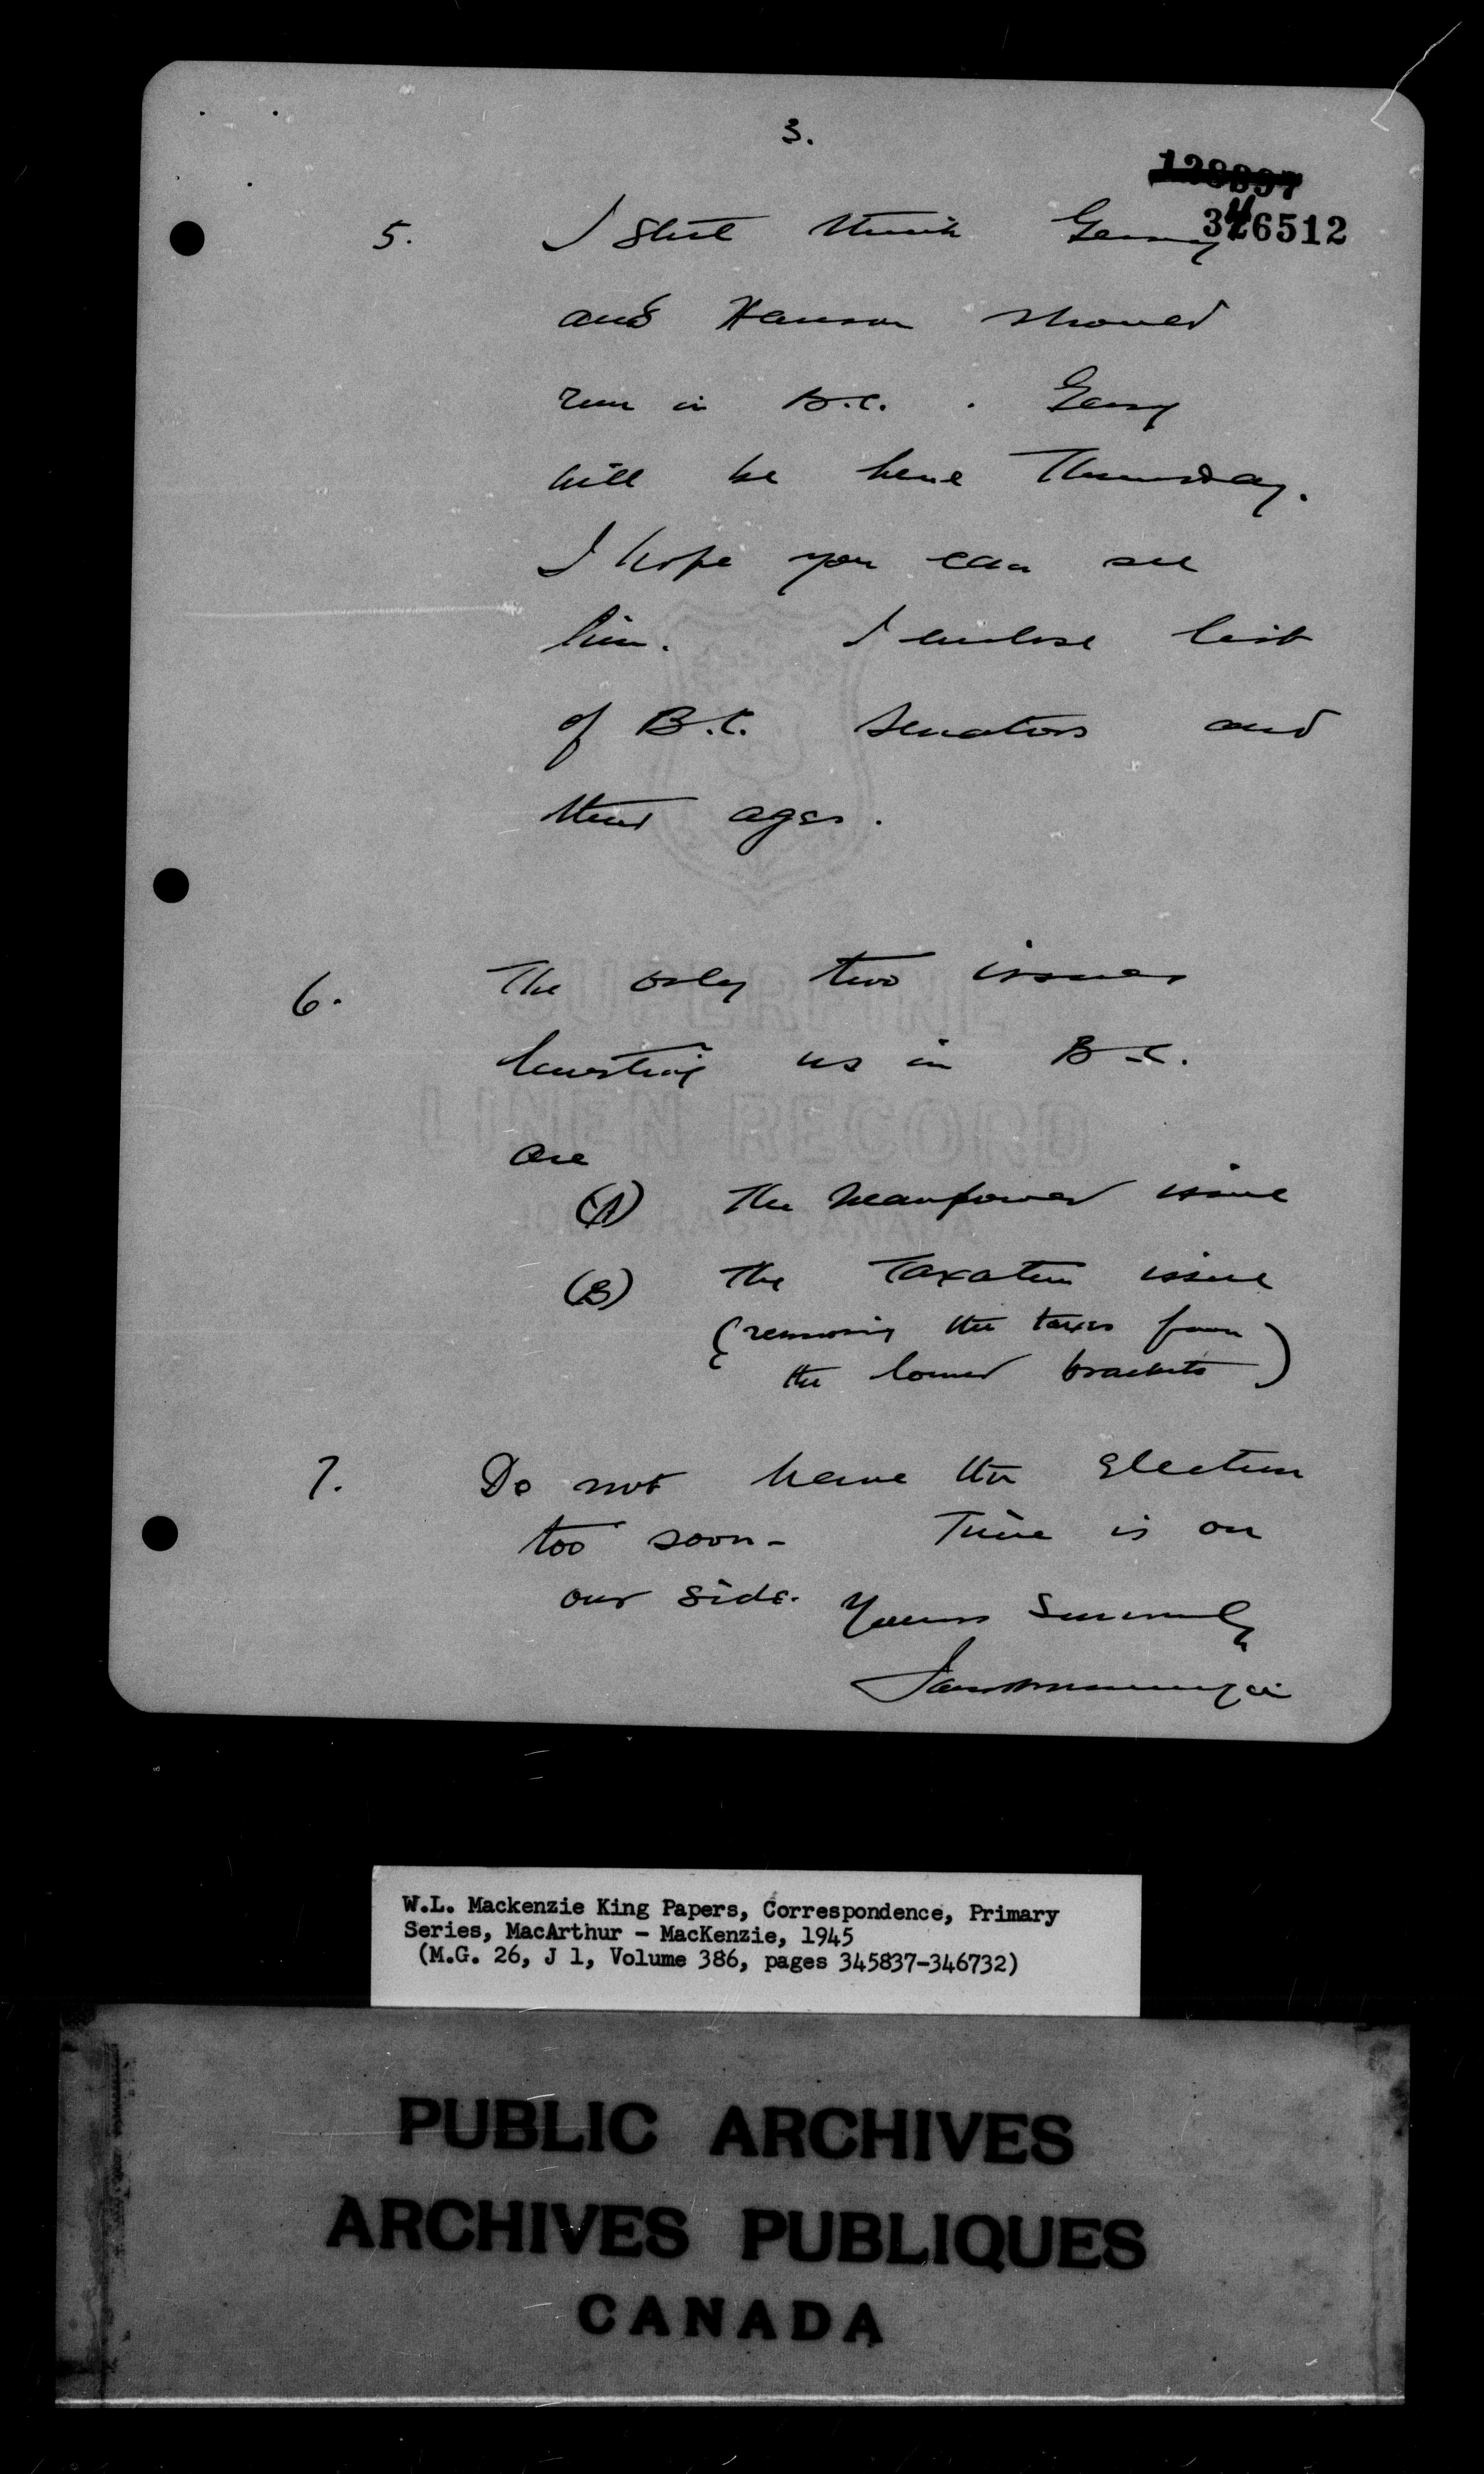 3.
128897
346512
5. I still think Gerry
and Hanson should
run in B.C. . Gerry
will be here Thursday.
I hope you can see
him. I enclose list
of B.C. Senators and
their ages.
6. The only two issues
hurting us in B.C.
are
(A) The Manpower issue
(B) The Taxation issue
(removing the taxes from
the lower brackets)
7. Do not have the Election
too soon- Time is on
our side. Yours Sincerely
SUPERFINE
LINEN RECORD
CANADA
W.L. Mackenzie King Papers, Correspondence, Primary
Series, MacArthur - MacKenzie, 1945
(M.G. 26, J 1, Volume 386, pages 345837-346732)
PUBLIC ARCHIVES
ARCHIVES PUBLIQUES
CANADA